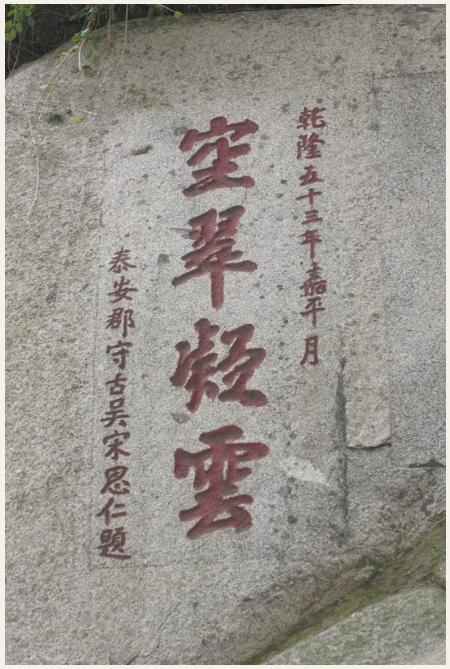 乾隆五十三年嘉平月
空翠凝雲
泰安郡守古吴宋思仁題